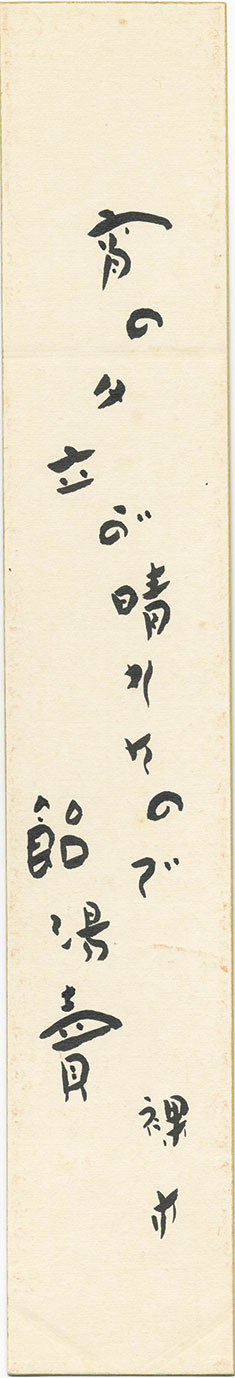 宵の夕立が晴れたので
飴湯賣
裸木